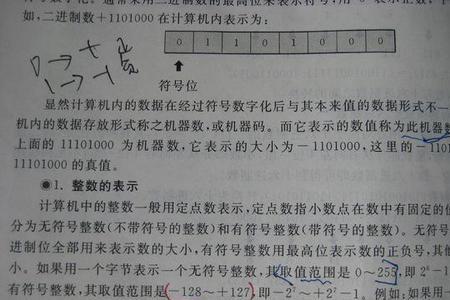 如,二进制数+1101000在计算机内表示为:
0 1 1 0 1 0 0 0
0→+
1→-
符号位
显然计算机内的数据在经过符号数字化后与其本来值的数据形式不一
机内的数据存放形式称之机器数,或机器码。而它表示的数值称为此机器数
上面的11101000为机器数,它表示的大小为-1101000,这里的-1101
11101000的真值。
◉1. 整数的表示
计算机中的整数一般用定点数表示,定点数指小数点在数中有固定的位
分为无符号整数(不带符号的整数)和有符号整数(带符号的整数)。无符号
进制位全部用来表示数的大小,有符号整数用最高位表示数的正负号,其他
小。如果用一个字节表示一个无符号整数,其取值范围是0~255,即2⁸-1
有符号整数,其取值范围是-128~+127,即-2⁷~+2⁷-1。例如:如果用一